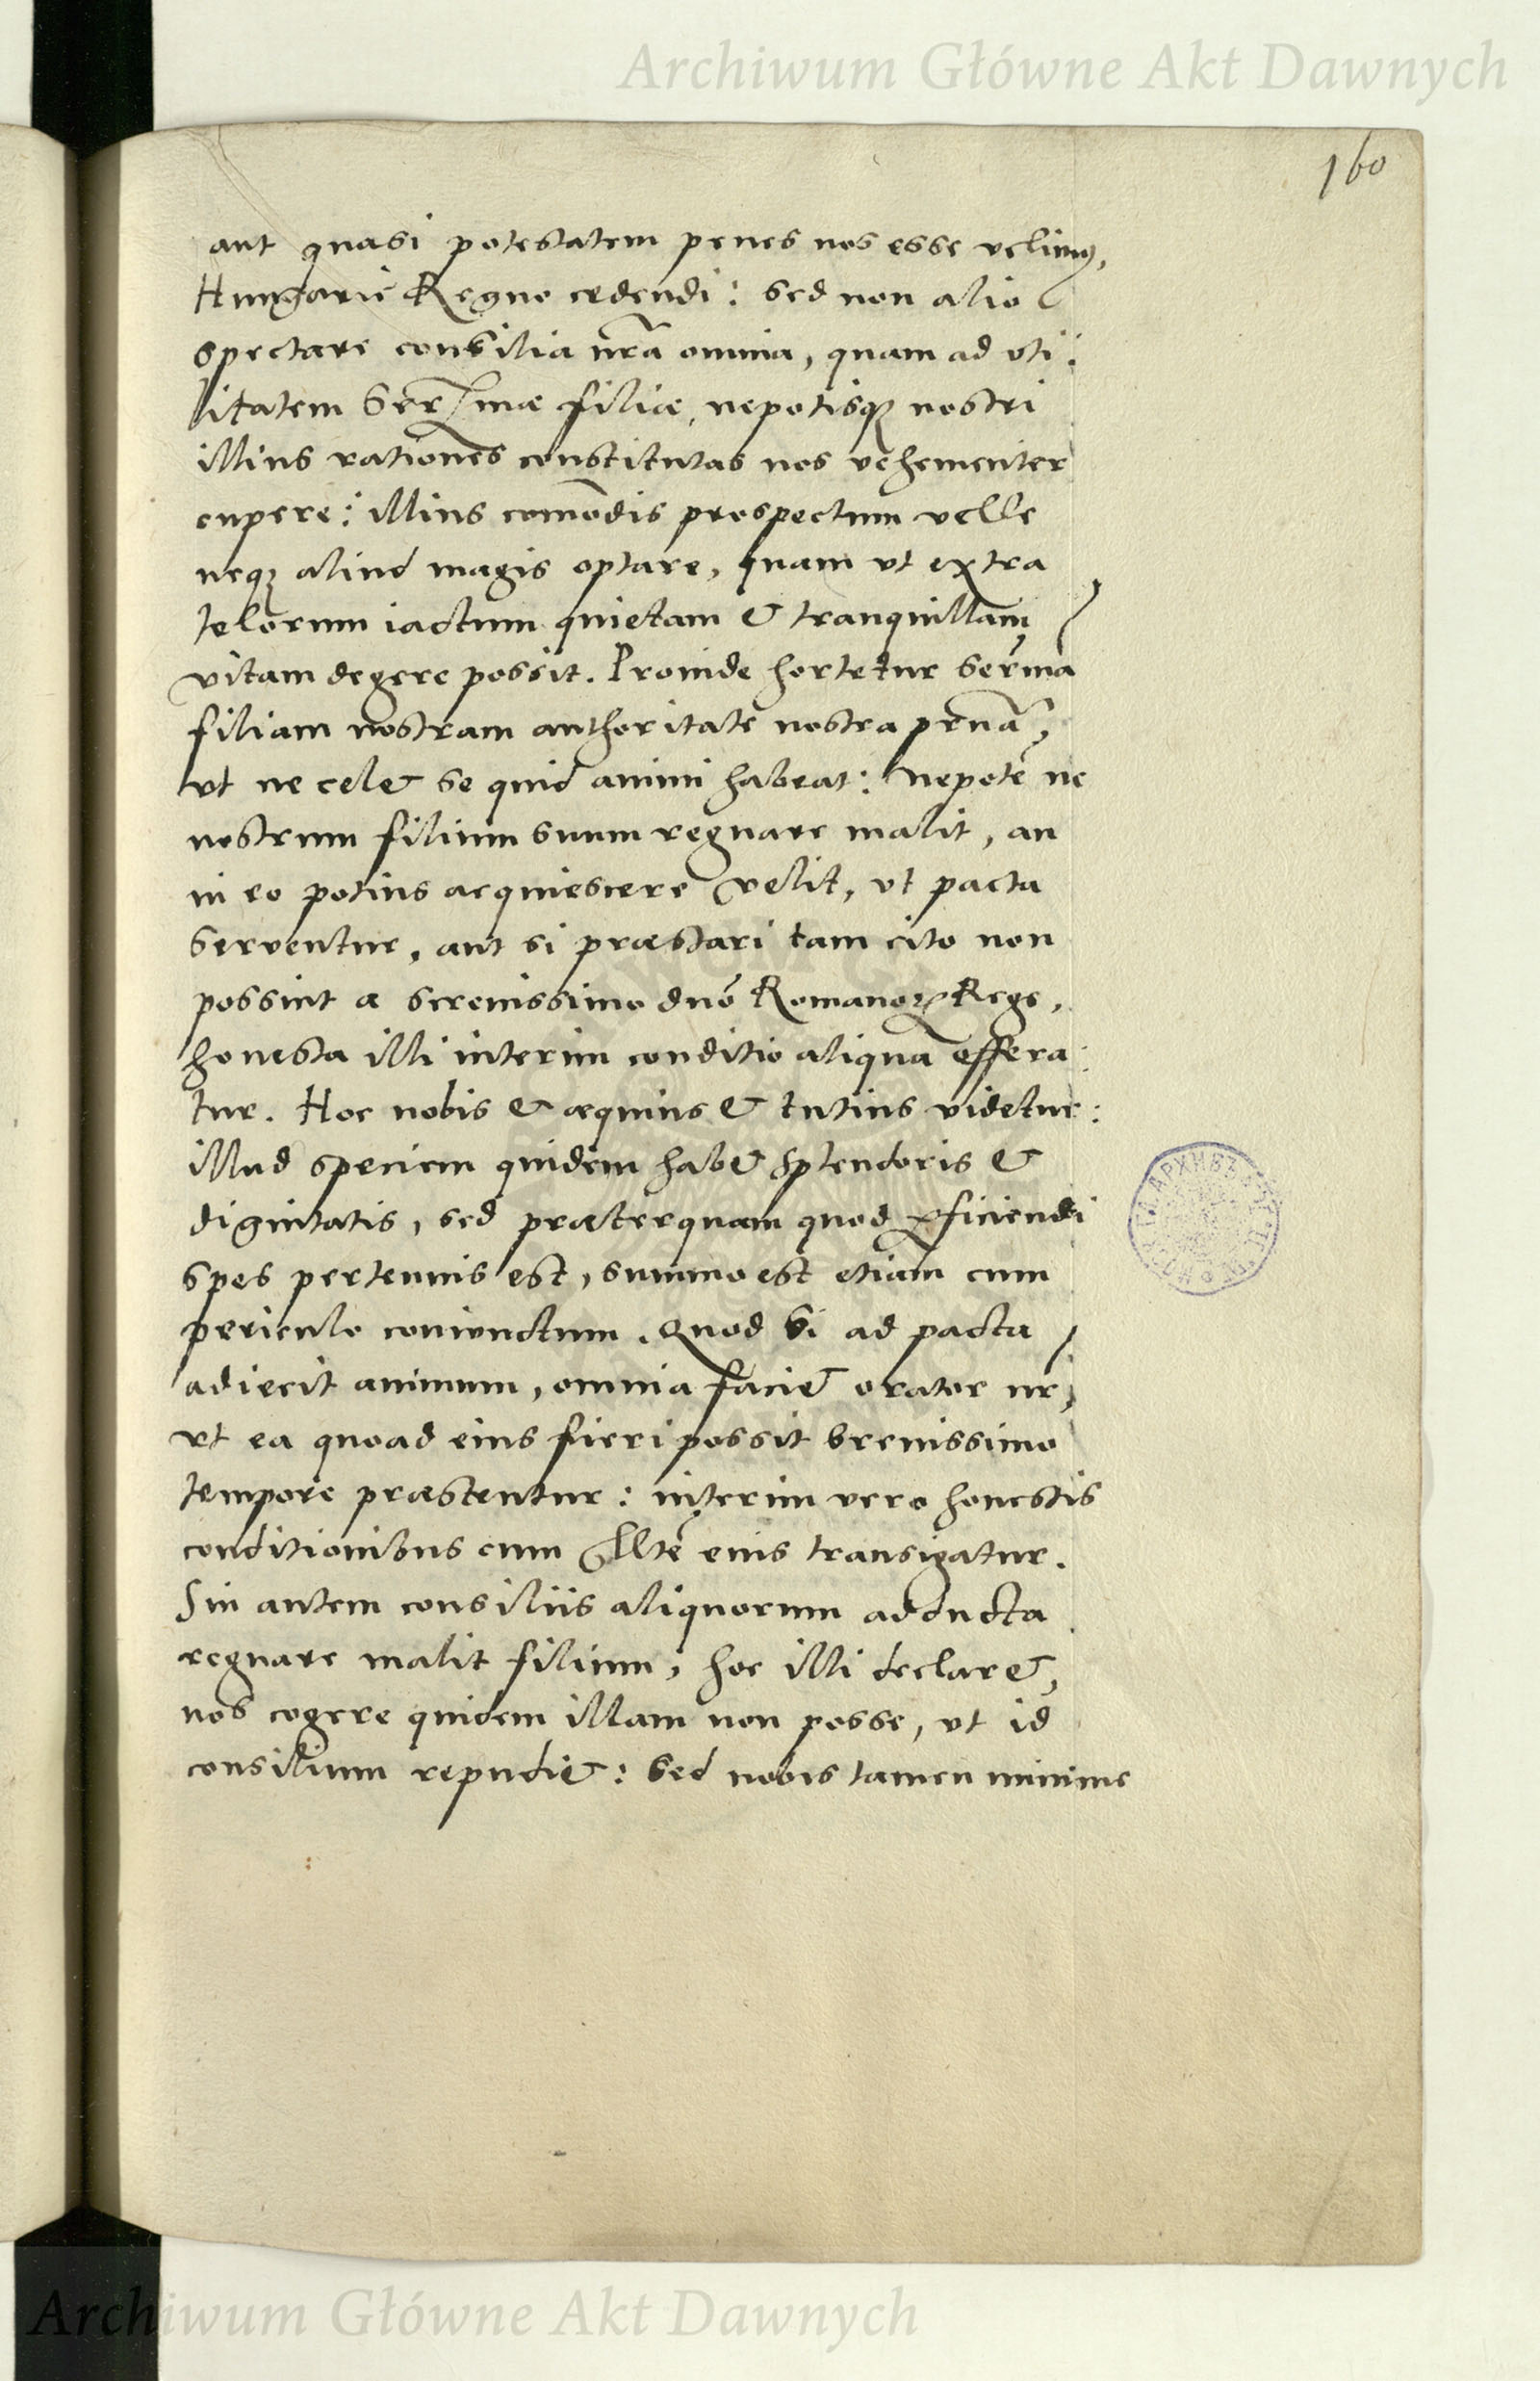 Archiwum Główne Akt Dawnych
160
aut quasi potestatem penes nos esse velimꝰ,
Hungarie Regno cedendi: sed non alio
spectare consilia nr̃a omnia, quam ad vti:
litatem Ser̃mae filiae, nepotisqꝫ nostri
illius rationes constitutas nos vehementer
cupere: illius com̃odis prospectum velle
neqꝫ aliud magis optare, quam vt extra
telorum iactum quietam & tranquillam
vitam degere possit. Proinde hortetur Serm̃a
filiam nostram authoritate nostra
vt ne celet se quid animi habeat: nepotẽ ne
nostrum filium suum regnare malit, an
in eo potius acquiescere velit, vt pacta
serventur, aut si praestari tam cito non
possint a serenissimo dnõ Romanoꝝ Rege,
honesta illi interim conditio aliqua offera:
tur. Hoc nobis & aequius & tutius videtur:
illud speciem quidem habet splendoris &
dignitatis, sed praeterquam quod ꝑficiendi
spes pertenuis est, summo est etiam cum
periculo coniunctum. Quod si ad pacta
adiecit animum, omnia faciet orator nr̃,
vt ea quoad eius fieri possit brevissimo
tempore praestentur: interim vero honestis
conditionibus cum Mtẽ eius transigatur.
Sin autem consiliis aliquorum adducta
regnare malit filium, hoc illi declaret,
nos cogere quidem illam non posse, vt id
consilium repudiet: sed nobis tamen minime
Archiwum Główne Akt Dawnych